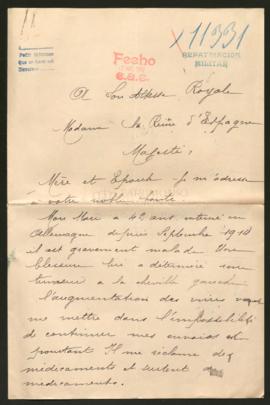 11331
REPATRIACION
MILITAR
Fecho
e.a.c.
A Son Altesse Royale
Madame la Reine d'Espagne
Majesté,
Mère et Epouse je m'adresse
à votre
Mon Mari a 42 ans interné en
Allemagne depuis Septembre 1914
il est gravement malade. Une
blessure lui a déterminé une
tumeur a la cheville gauche
l'augmentation des vivres
me mettre dans l'impossibilité
de continuer mes envois et
pourtant Il me réclame des
médicaments et surtout des
médicaments.